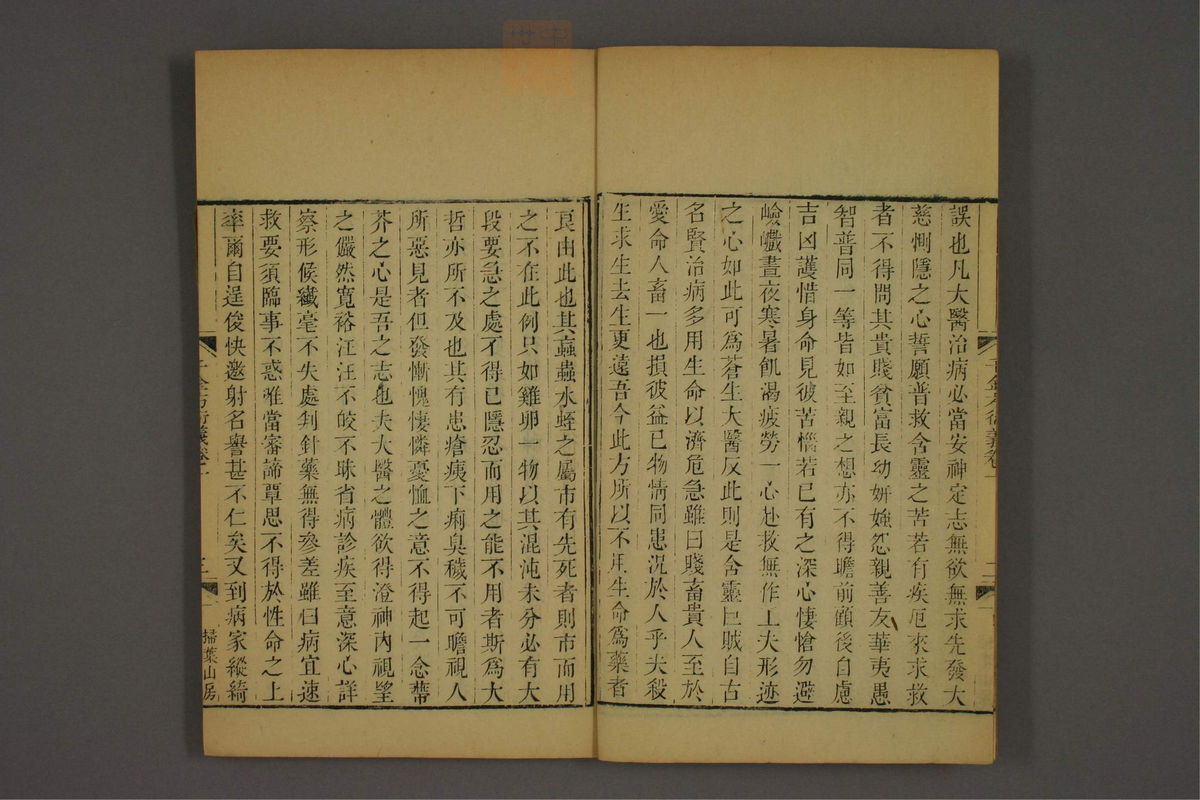 誤也凡大醫治病必當安神定志無欲無求先發大
慈惻隱之心誓願普救含靈之苦若有疾厄來求救
者不得問其貴賤貧富長幼妍媸怨親善友華夷愚
智普同一等皆如至親之想亦不得瞻前顧後自慮
吉凶護惜身命見彼苦惱若已有之深心悽愴勿避
嶮巇晝夜寒暑飢渴疲勞一心赴救無作工夫形迹
之心如此可為蒼生大醫反此則是含靈巨賊自古
名賢治病多用生命以濟危急雖曰賤畜貴人至於
愛命人畜一也損彼益已物情同患況於人乎夫殺
生求生去生更遠吾今此方所以不用生命為藥者
良由此也其蝱蟲水蛭之屬市有先死者則市而用
之不在此例只如雞卵一物以其混沌未分必有大
段要急之處不得已隱忍而用之能不用者斯為大
哲亦所不及也其有患瘡痍下痢臭穢不可瞻視人
所惡見者但發慚愧悽憐憂恤之意不得起一念蔕
芥之心是吾之志也夫大醫之體欲得澄神內視望
之儼然寬裕汪汪不皎不昧省病診疾至意深心詳
察形候纖毫不失處判針藥無得參差雖曰病宜速
救要須臨事不惑唯當審諦覃思不得於性命之上
率爾自逞俊快邀射名譽甚不仁矣又到病家縱綺
千金方衍義卷一
三
掃葉山房